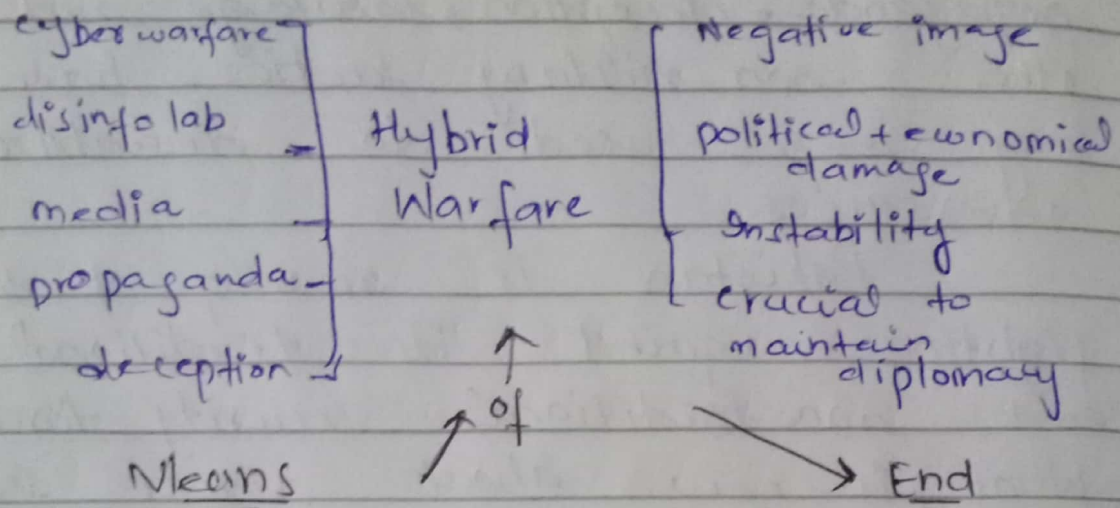 cyber warfare
disinfo lab
media
propaganda
deception
Hybrid
Warfare
Negative image
political + economical
damage
Instability
crucial to
maintain
diplomacy
of
Means
End